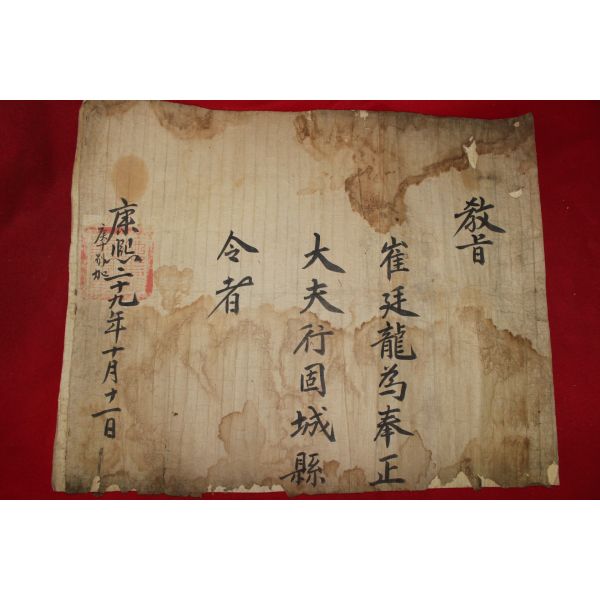 敎旨
崔廷龍為奉正
大夫行固城縣
令者
康熙二十九年十月十一日